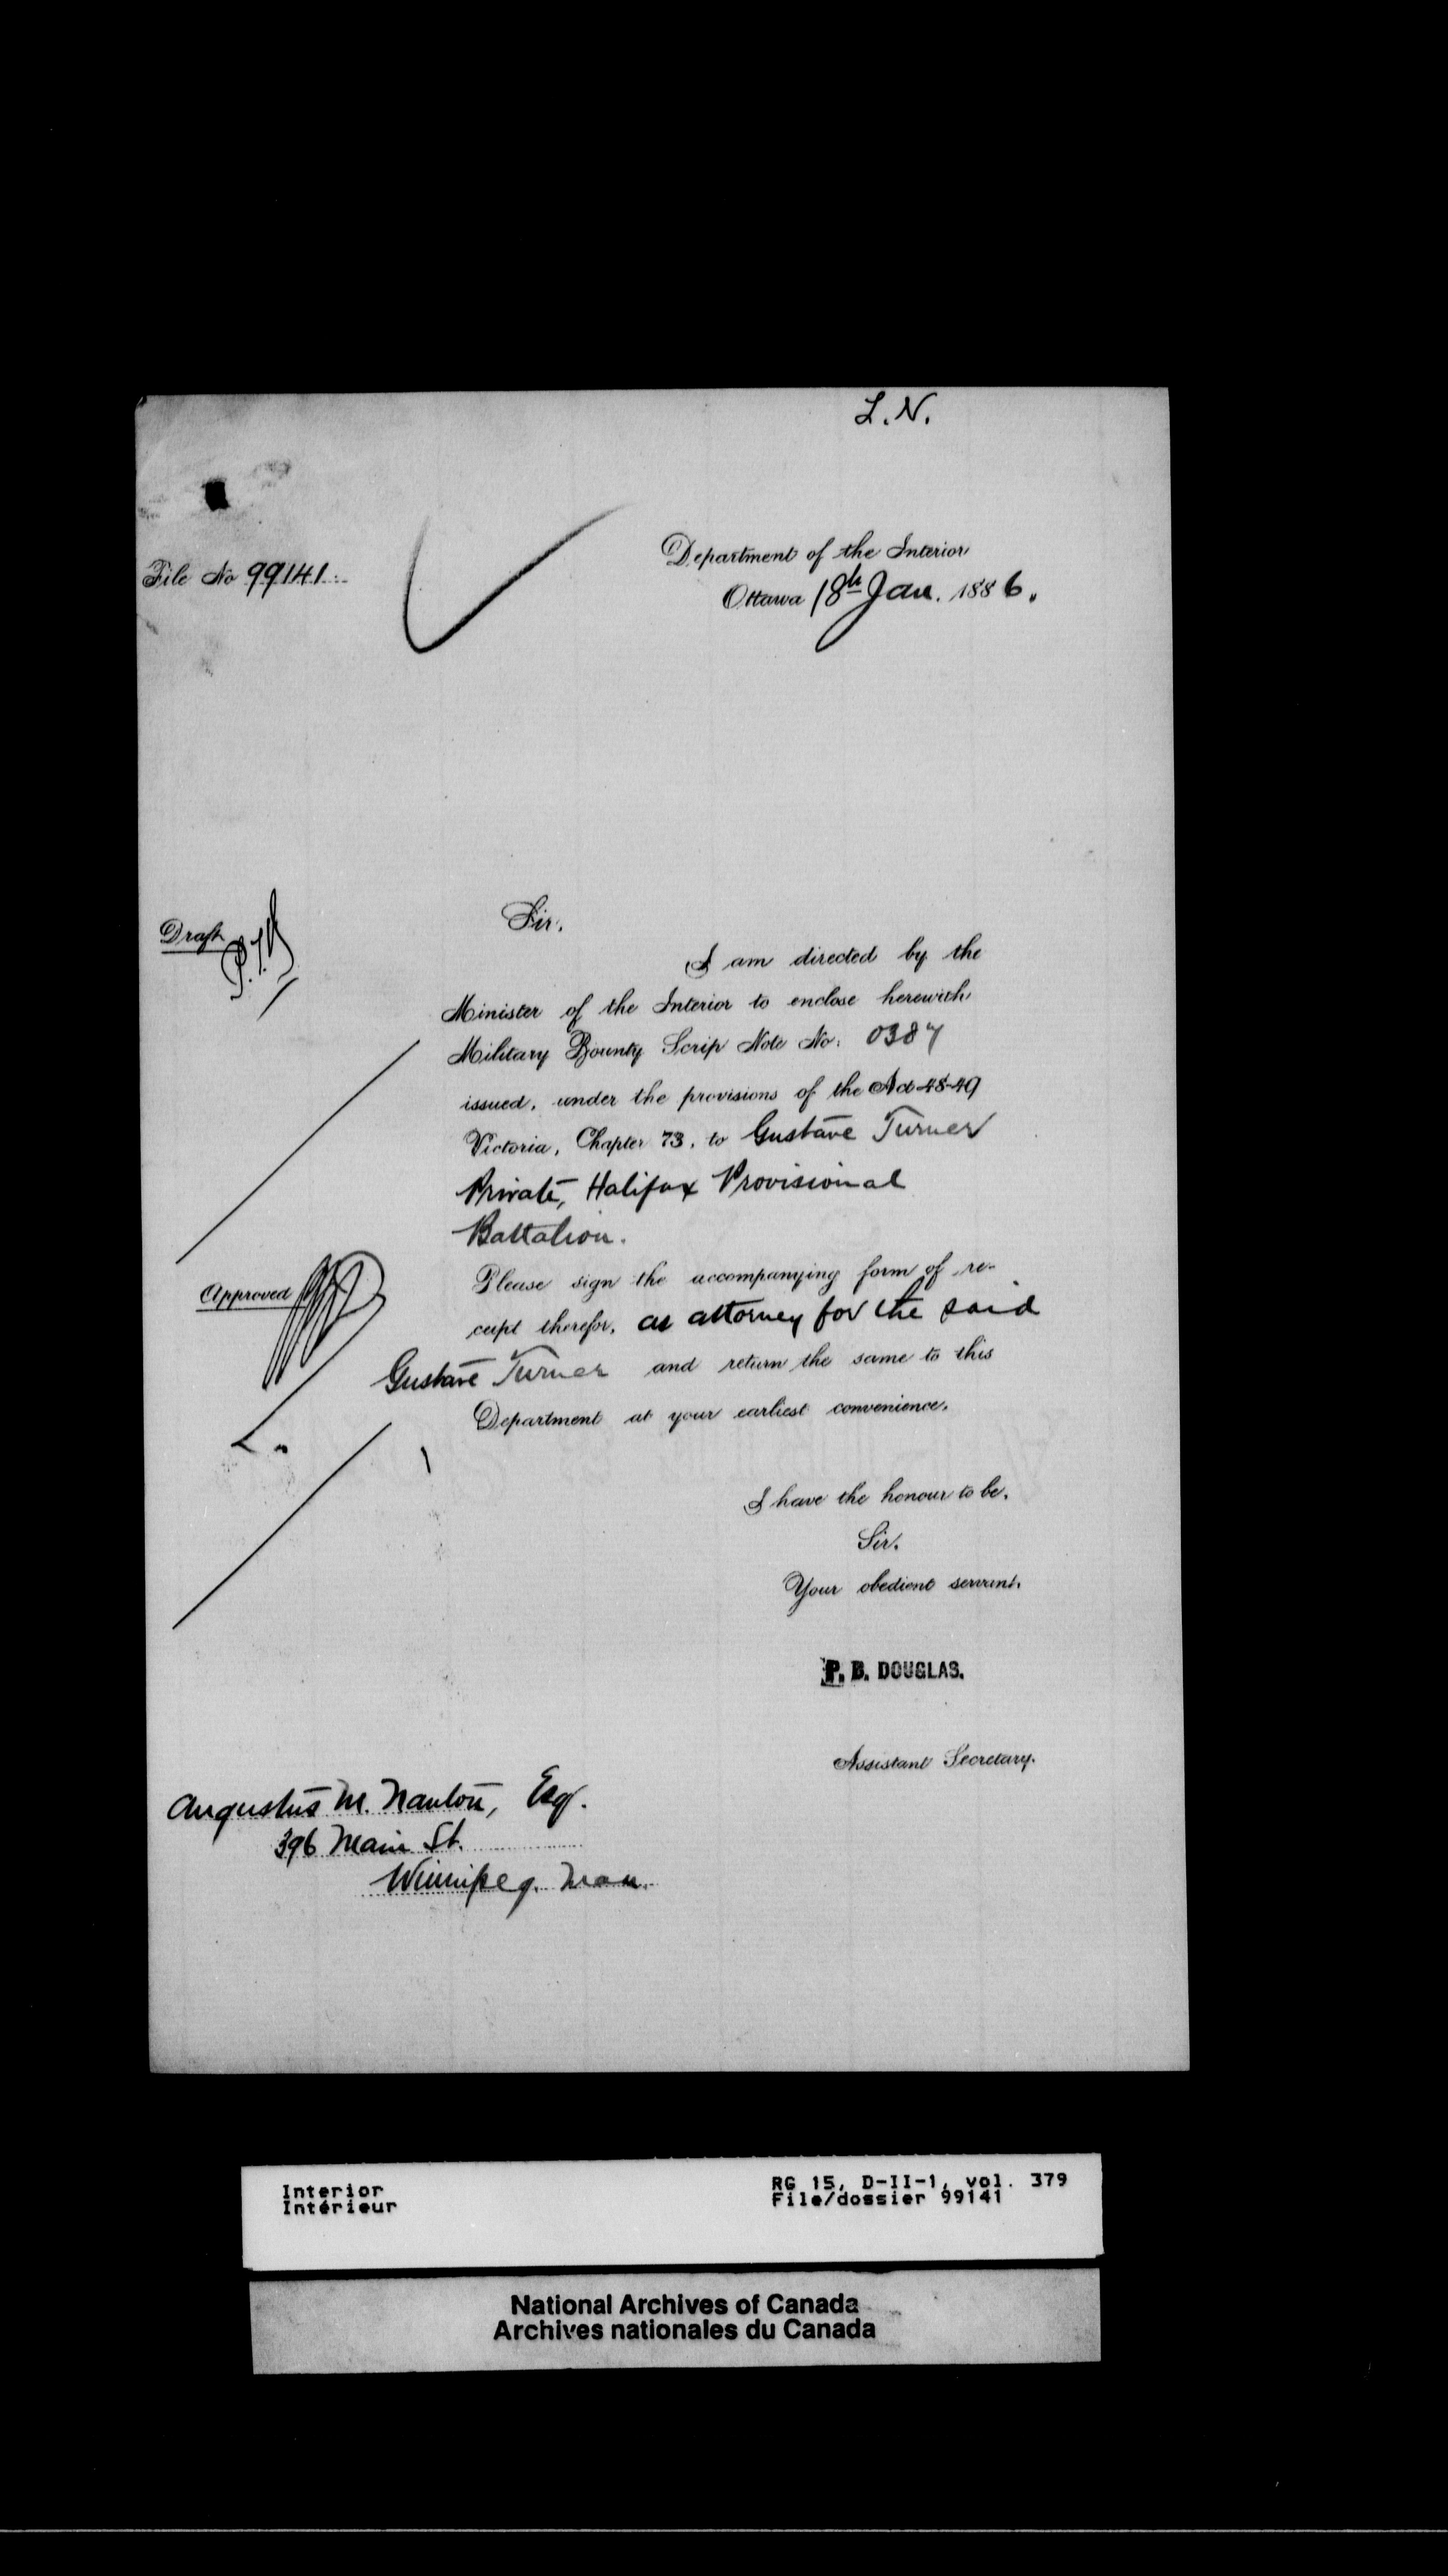 L. N.
File No 99141
Department of the Interior
Ottawa 18th Jan. 1886.
Draft
Sir,
I am directed by the
Minister of the Interior to enclose herewith
Military Bounty Scrip Note No: 0387
issued, under the provisions of the Act 48-49
Victoria, Chapter 73, to Gustave Turner
Private, Halifax Provisional
Battalion.
Approved
Please sign the accompanying form of re-
ceipt therefor, as attorney for the said
Gustave Turner and return the same to this
Department at your earliest convenience.
I have the honour to be,
Sir,
Your obedient servant,
P. B. DOUGLAS.
Assistant Secretary.
Augustus M. Nanton, Esq.
396 Main St.
Winnipeg. Man.
Interior
Intérieur
RG 15, D-II-1, vol. 379
File/dossier 99141
National Archives of Canada
Archives nationales du Canada